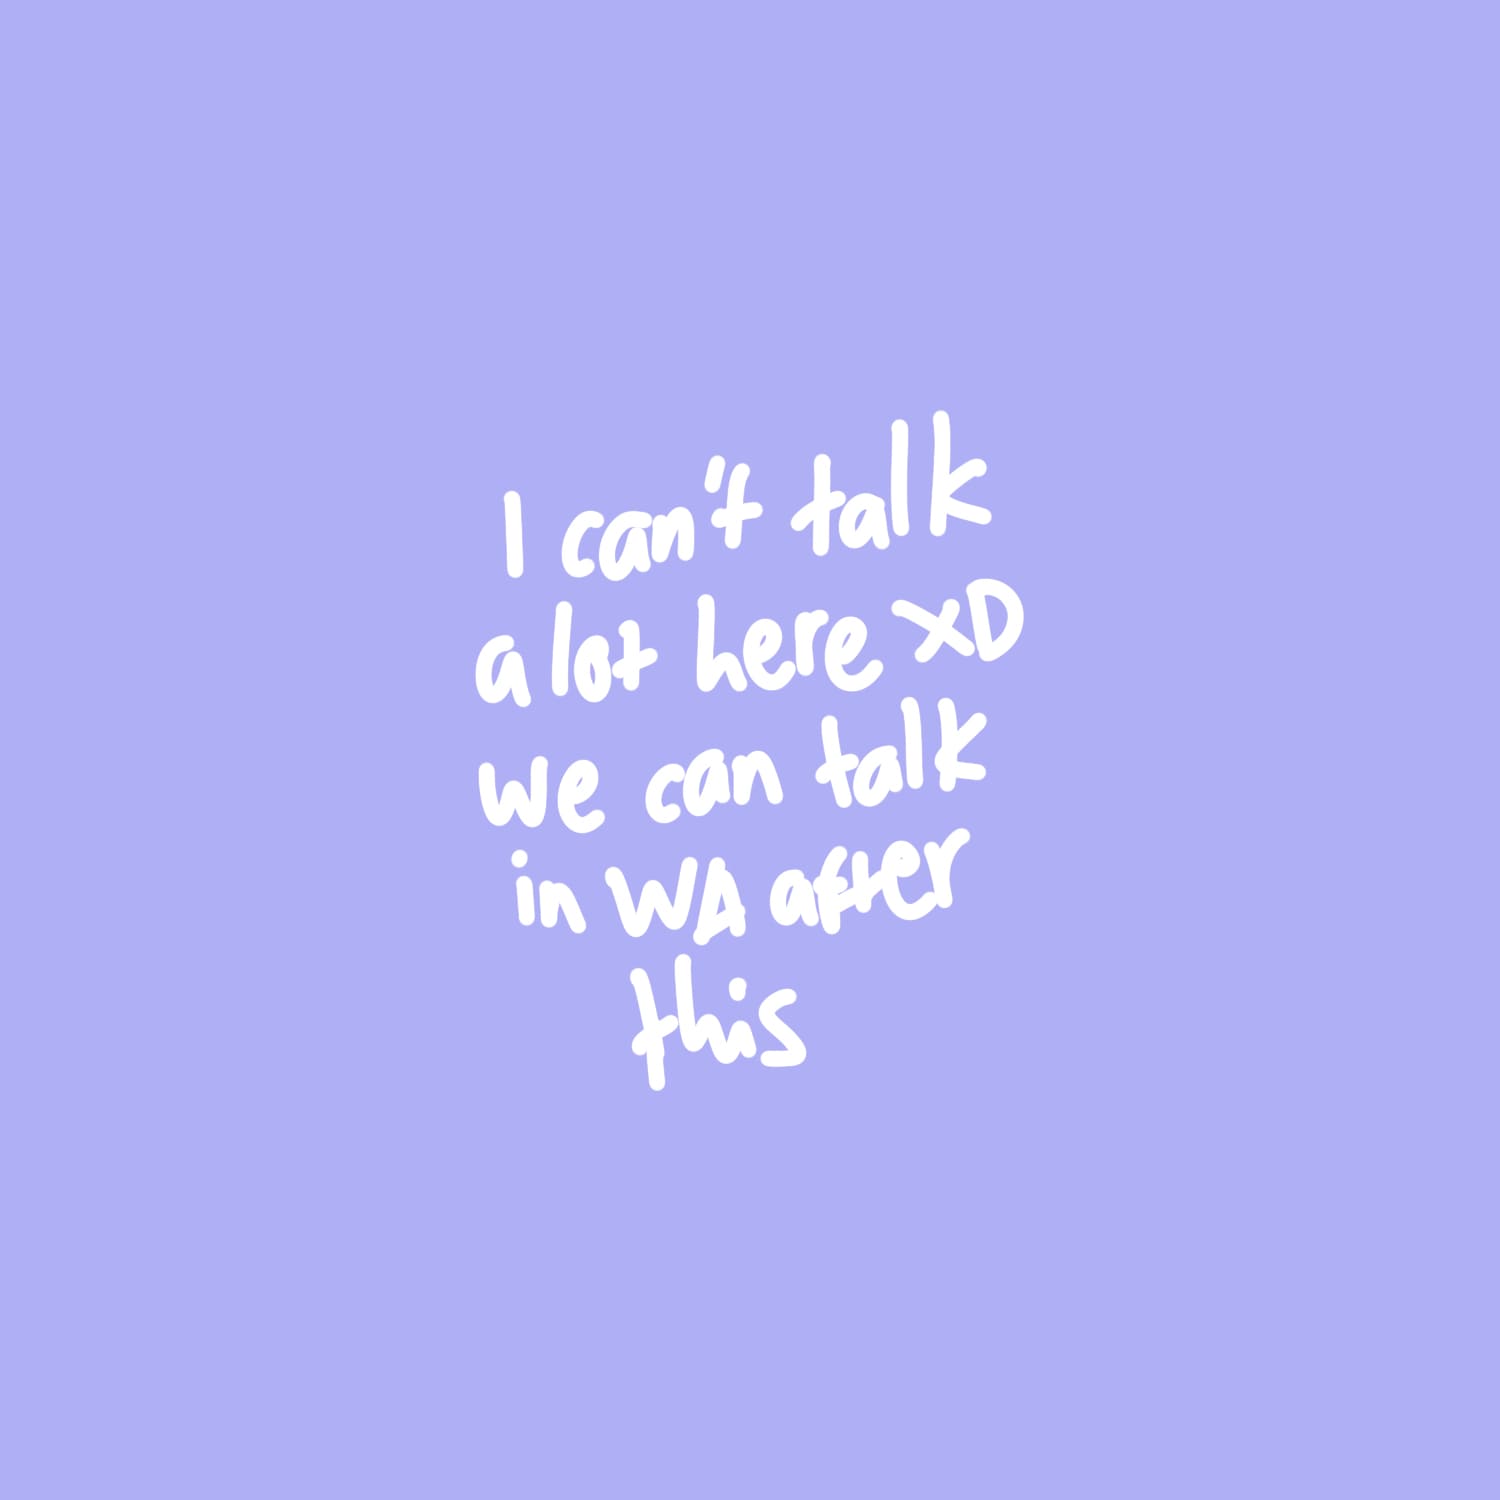 I can't talk
a lot here XD
we can talk
in WA after
this